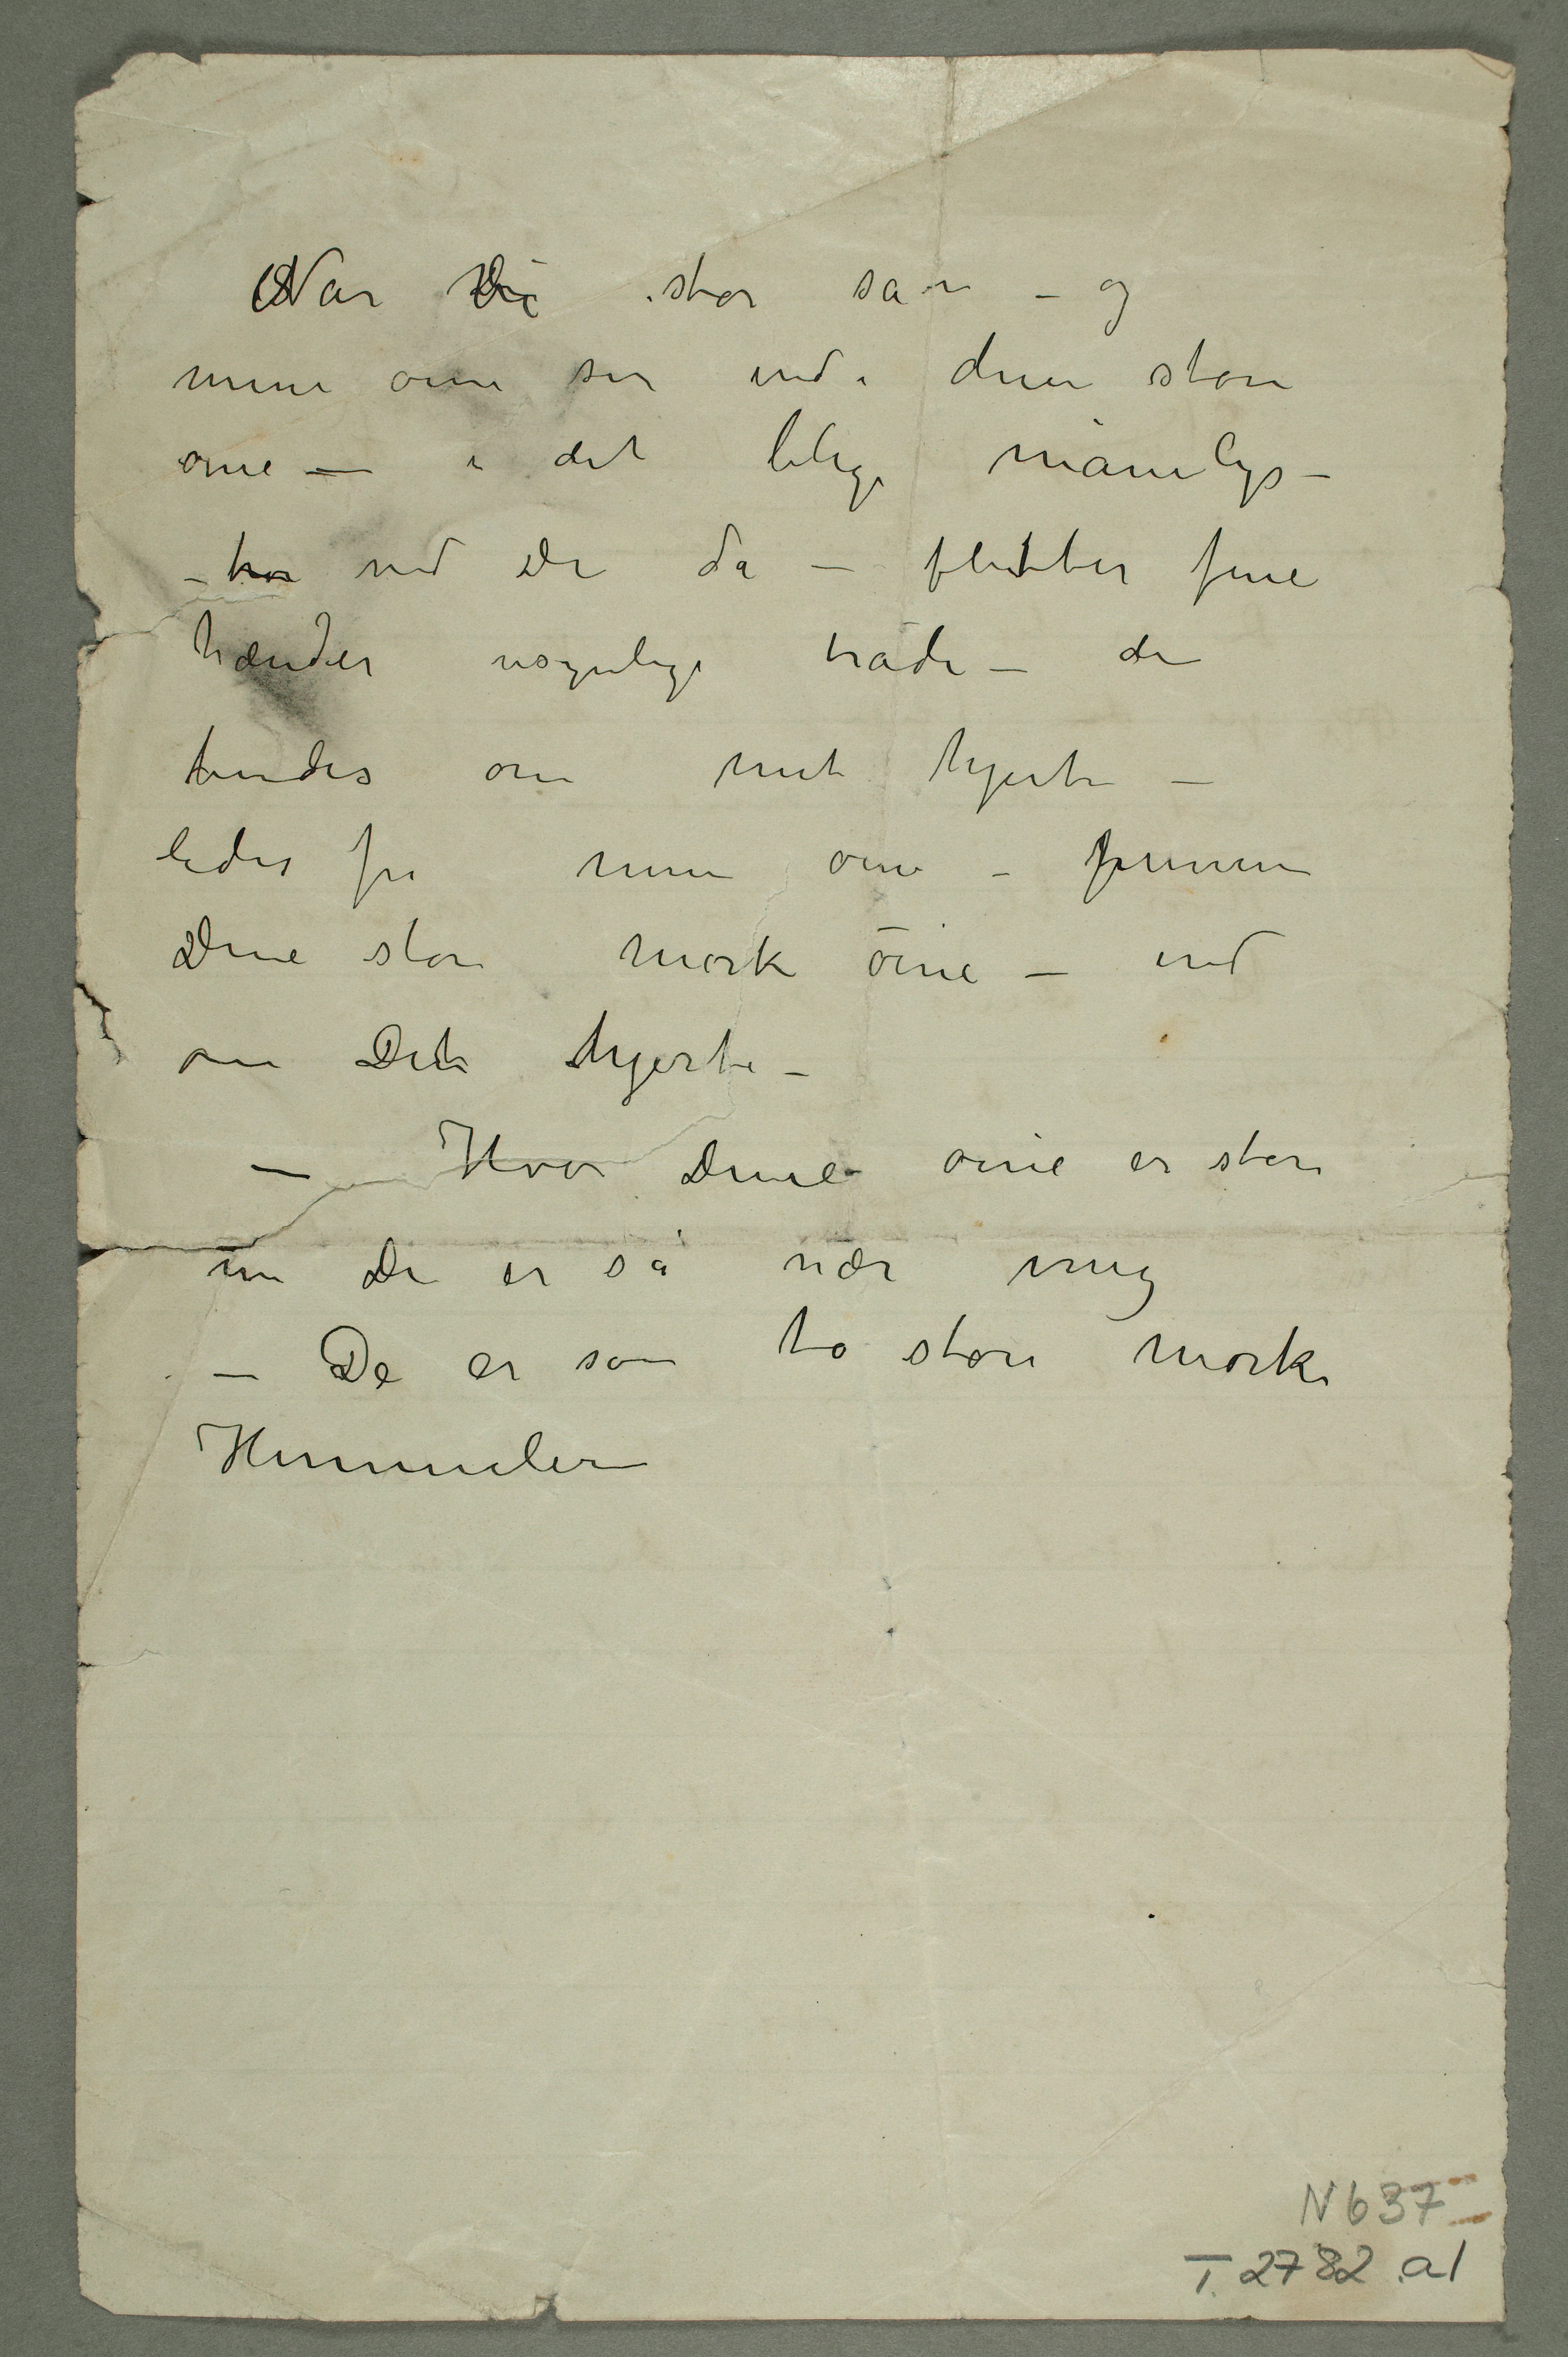 Når Vi står sån – og
mine øine ser ind i dine store
øine – i det blege månelys –
– tror ved De da – fletter fine
hænder usynlige tråde – de
bindes om mit hjerte –
ledes fra mine øine – gjennem
Dine store mørke øine – ind
om Dit hjerte –
– Hvor Dine øine er store
nu De er så nær mig
– De er som to store mørke
Himmeler
N 637
T 2782 a1